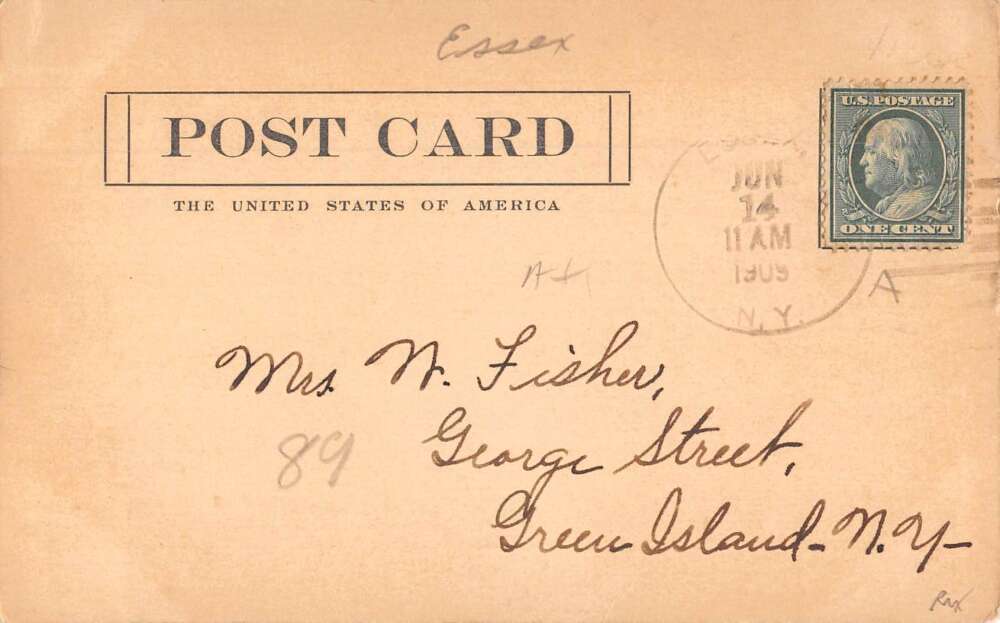 Essex
POST CARD
THE UNITED STATES OF AMERICA
U.S. POSTAGE
ONE CENT
JUN
14
11 AM
1909
N.Y.
A
Mrs. W. Fisher,
89
George Street,
Green Island - N.Y -